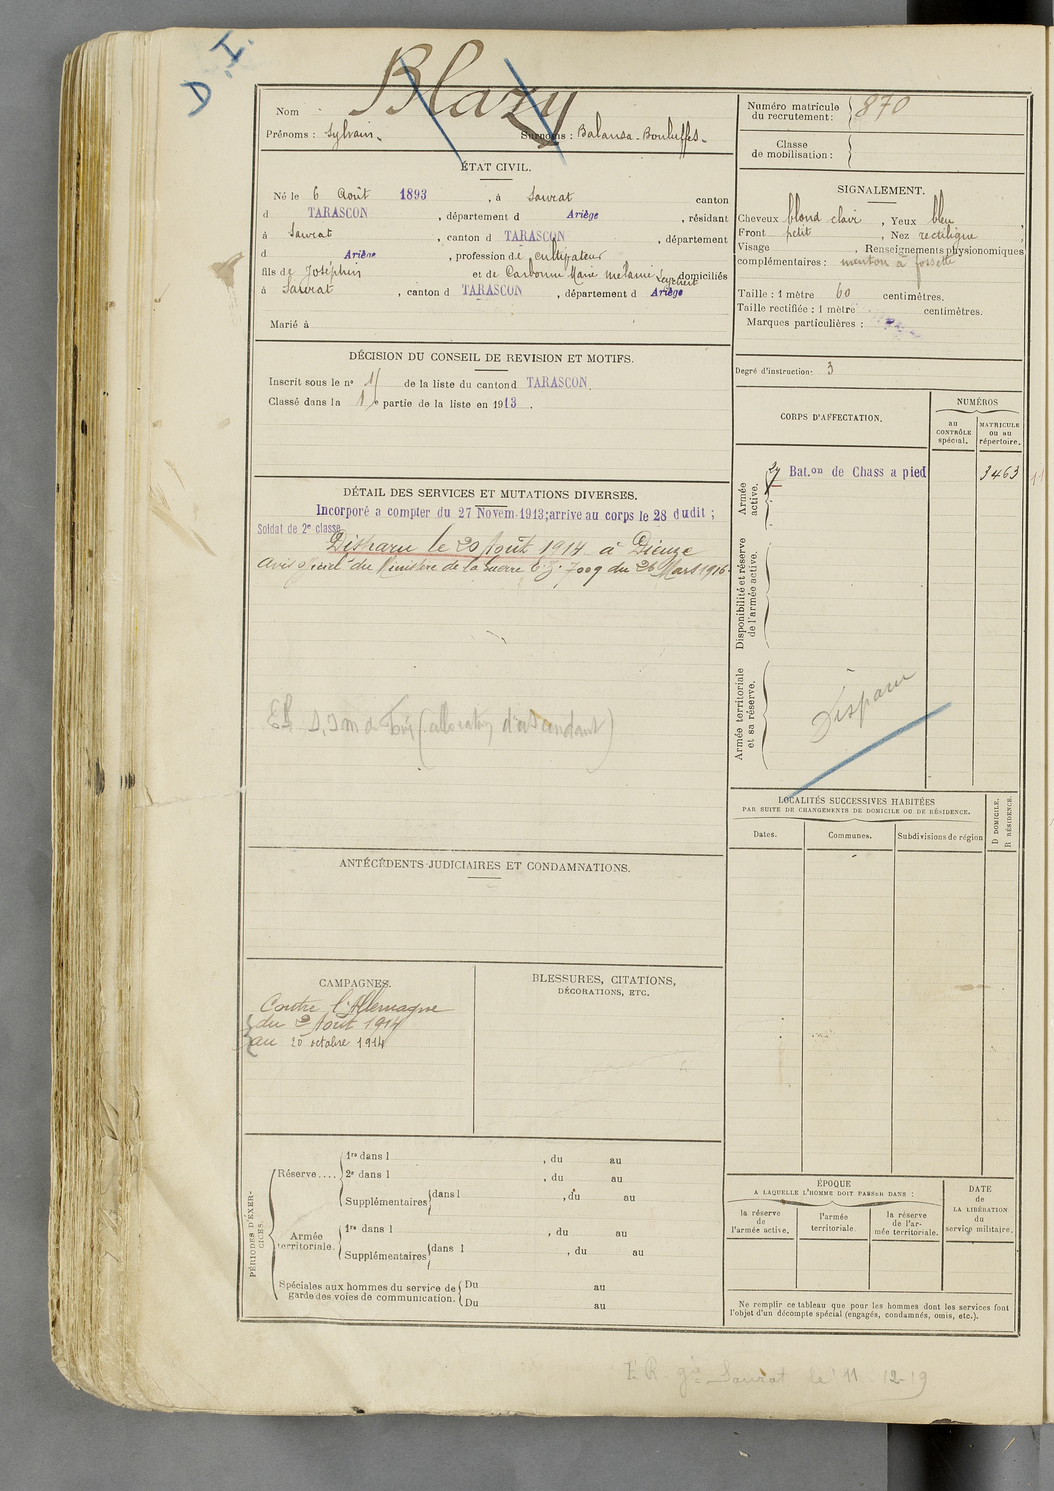 D. I.
Blazy
Nom
Prénoms : Sylvain. Surnoms : Balansa-Bouluffes.
ÉTAT CIVIL.
Né le 6 Août 1893, à Saurat canton
d TARASCON, département d Ariège, résidant
à Saurat, canton d TARASCON, département
d Ariège, profession de cultivateur
fils de Joséphin et de Carbonne Marie mélanie domiciliés
à Saurat, canton d TARASCON, département d Ariège
Marié à
DÉCISION DU CONSEIL DE REVISION ET MOTIFS.
Inscrit sous le nº de la liste du canton d TARASCON.
Classé dans la 1e partie de la liste en 1913.
DÉTAIL DES SERVICES ET MUTATIONS DIVERSES.
Incorporé a compter du 27 Novem. 1913; arrive au corps le 28 dudit ;
Soldat de 2e classe
Disparu le 20 Août 1914 à Dieuze
avis officiel du Ministère de la Guerre 7009 du 26 Mars 1916.
(allocation d'ascendant)
ANTÉCÉDENTS JUDICIAIRES ET CONDAMNATIONS.
CAMPAGNES.
Contre l'Allemagne
du 2 Août 1914
au 20 octobre 1914
BLESSURES, CITATIONS,
DÉCORATIONS, ETC.
PÉRIODES D'EXERCICES.
Réserve....
1re dans l , du au
2e dans l , du au
Supplémentaires dans l , du au
Armée
territoriale.
1re dans l , du au
Supplémentaires dans l , du au
Spéciales aux hommes du service de
garde des voies de communication.
Du au
Du au
Numéro matricule
du recrutement : 870
Classe
de mobilisation :
SIGNALEMENT.
Cheveux blond clair, Yeux bleu
Front petit, Nez rectiligne
Visage , Renseignements physionomiques
complémentaires : menton à fossette
Taille : 1 mètre 60 centimètres.
Taille rectifiée : 1 mètre centimètres.
Marques particulières :
Degré d'instruction : 3
CORPS D'AFFECTATION.
NUMÉROS
au
CONTRÔLE
spécial.
MATRICULE
ou au
répertoire.
Armée
active.
27 Bat.on de Chass a pied 3463
Disponibilité et réserve
de l'armée active.
Armée territoriale
et sa réserve.
Disparu
LOCALITÉS SUCCESSIVES HABITÉES
PAR SUITE DE CHANGEMENTS DE DOMICILE OU DE RÉSIDENCE.
Dates. Communes. Subdivisions de région
D DOMICILE.
R RÉSIDENCE.
ÉPOQUE
A LAQUELLE L'HOMME DOIT PASSER DANS :
la réserve
de
l'armée active.
l'armée
territoriale.
la réserve
de l'ar-
mée territoriale.
DATE
de
LA LIBÉRATION
du
service militaire.
Ne remplir ce tableau que pour les hommes dont les services font
l'objet d'un décompte spécial (engagés, condamnés, omis, etc.).
Saurat le 11 12-19